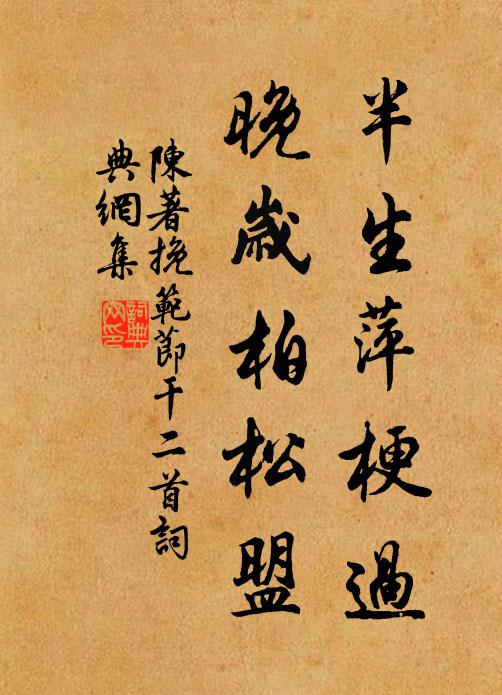 半生萍梗過
晚歲柏松盟
陳著挽範節干二首詞
典網集
詞典網印